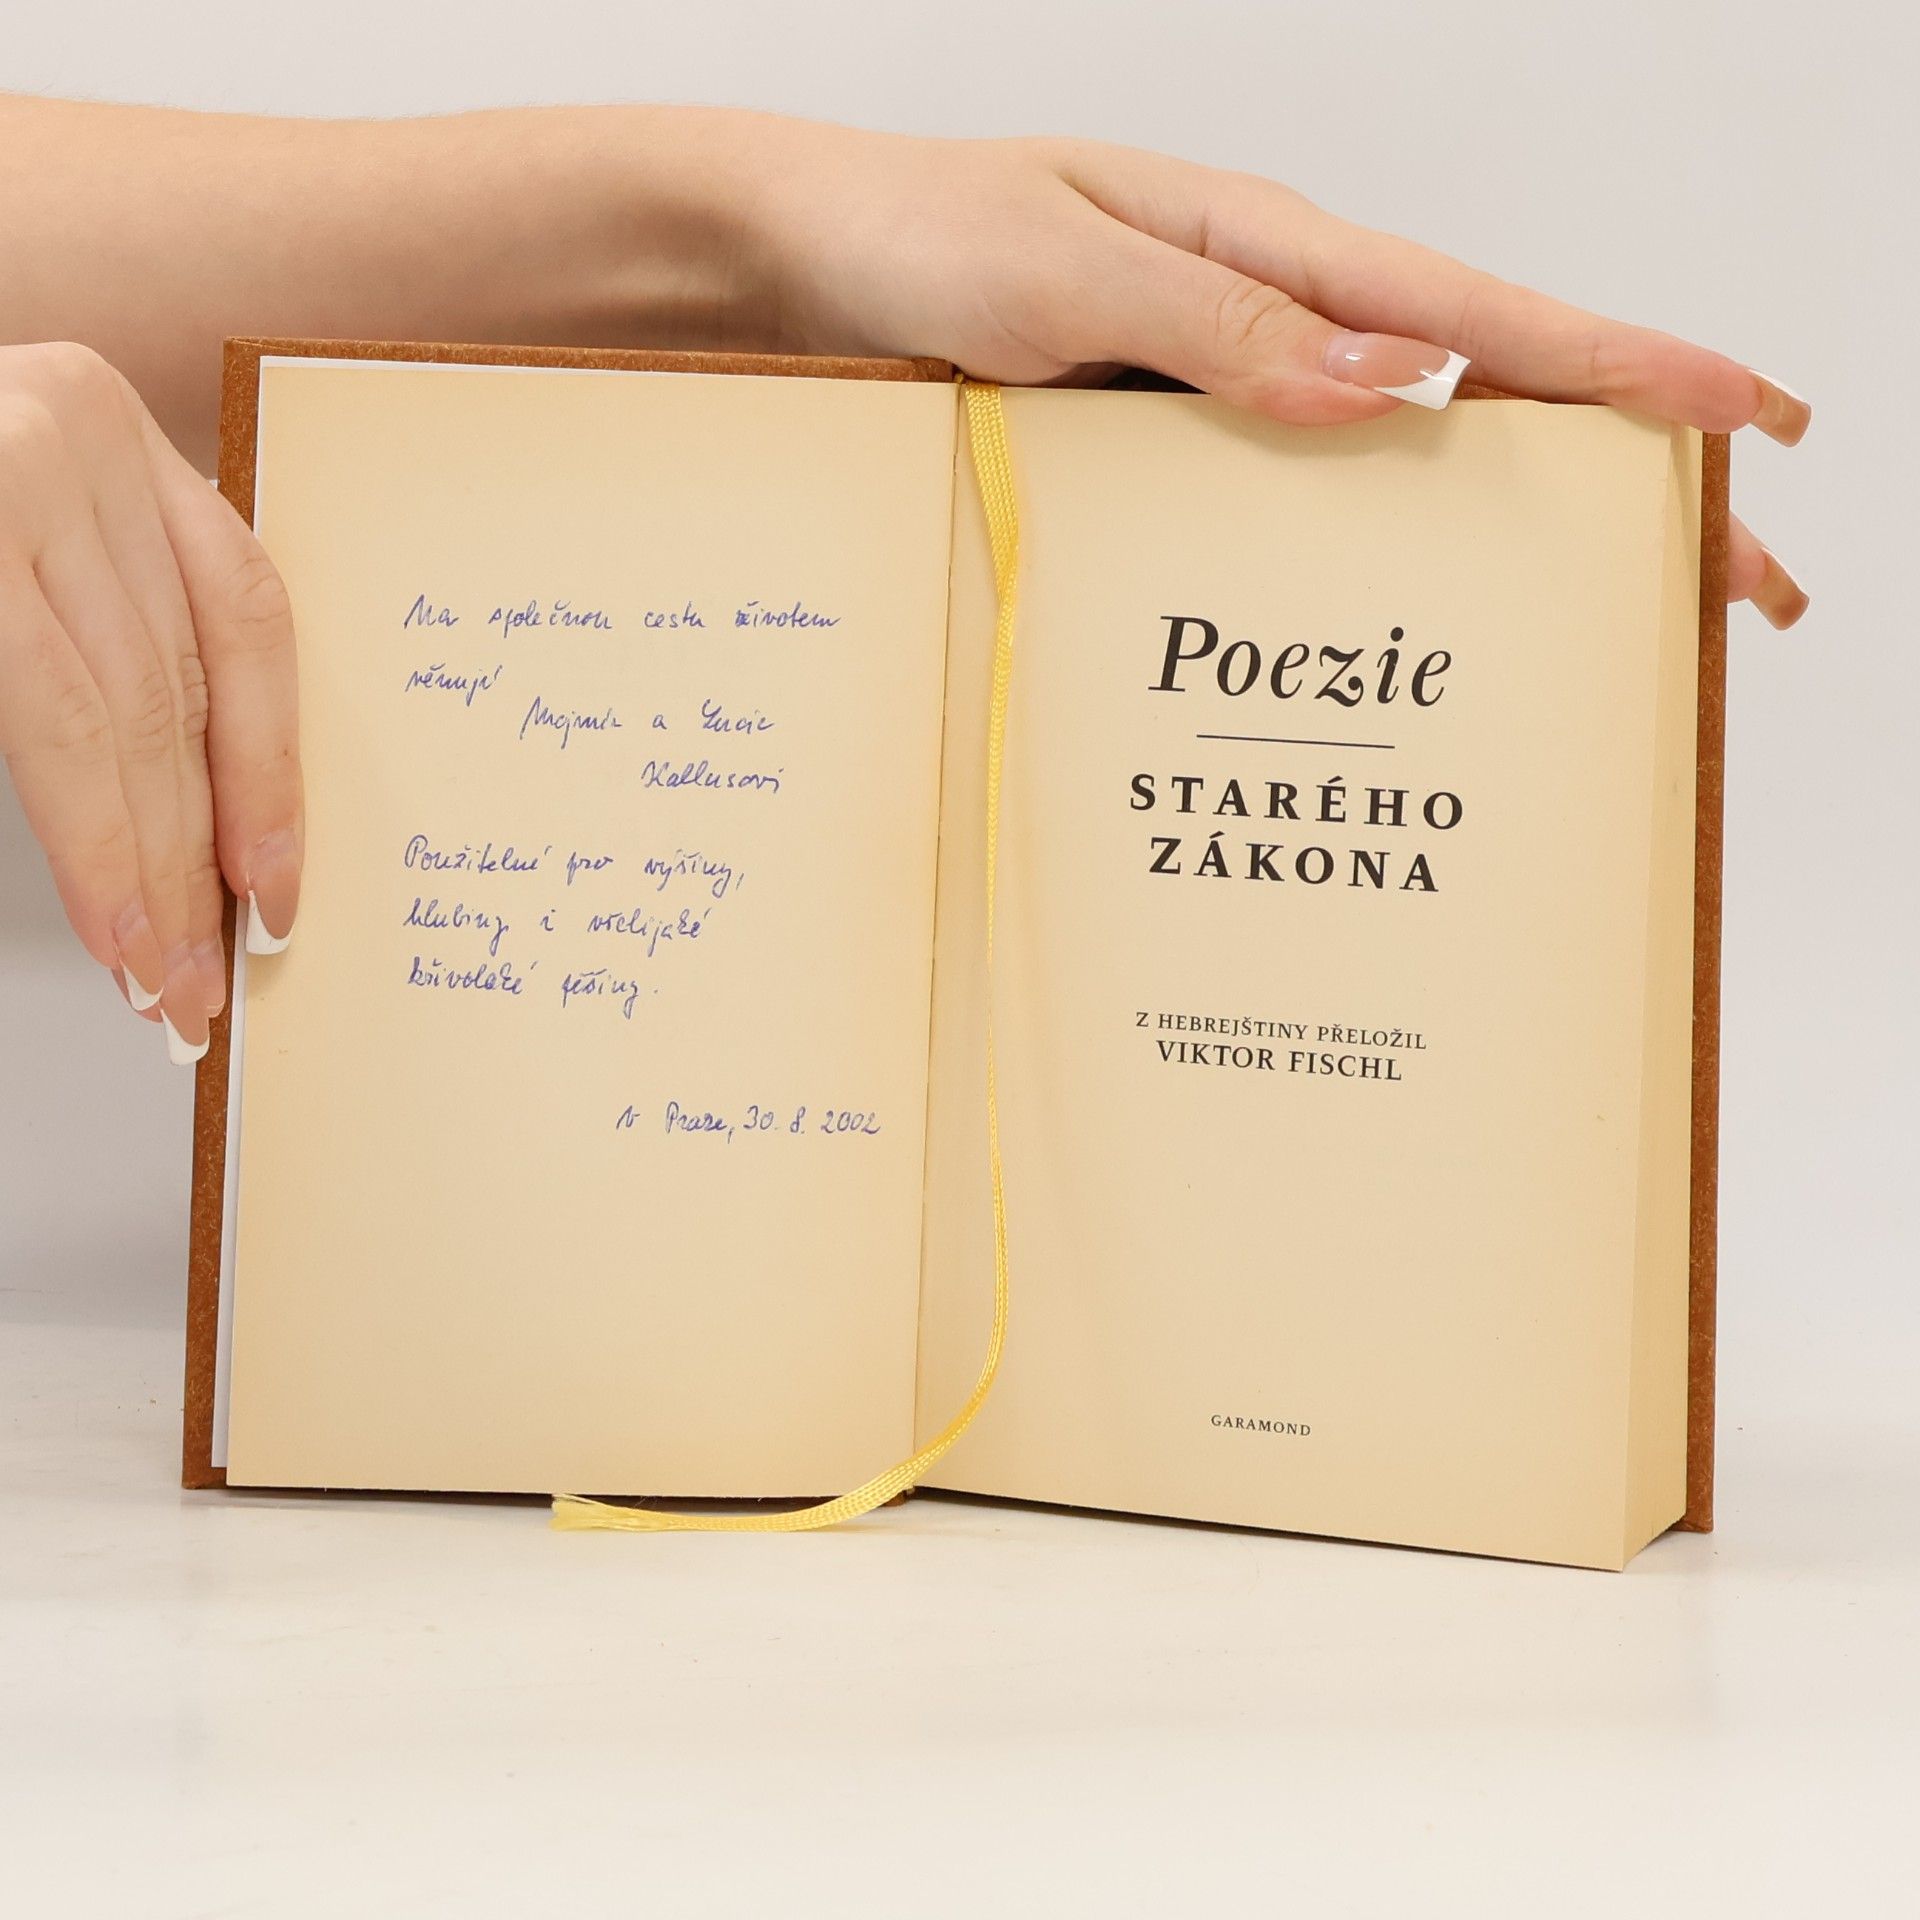 Na společnou cestu životem
věnují
Mojmír a Lucie
Kallusovi
Použitelné pro výšiny,
hlubiny i všelijaké
křivolaké pěšiny.
V Praze, 30. 8. 2002
Poezie
STARÉHO
ZÁKONA
Z HEBREJŠTINY PŘELOŽIL
VIKTOR FISCHL
GARAMOND